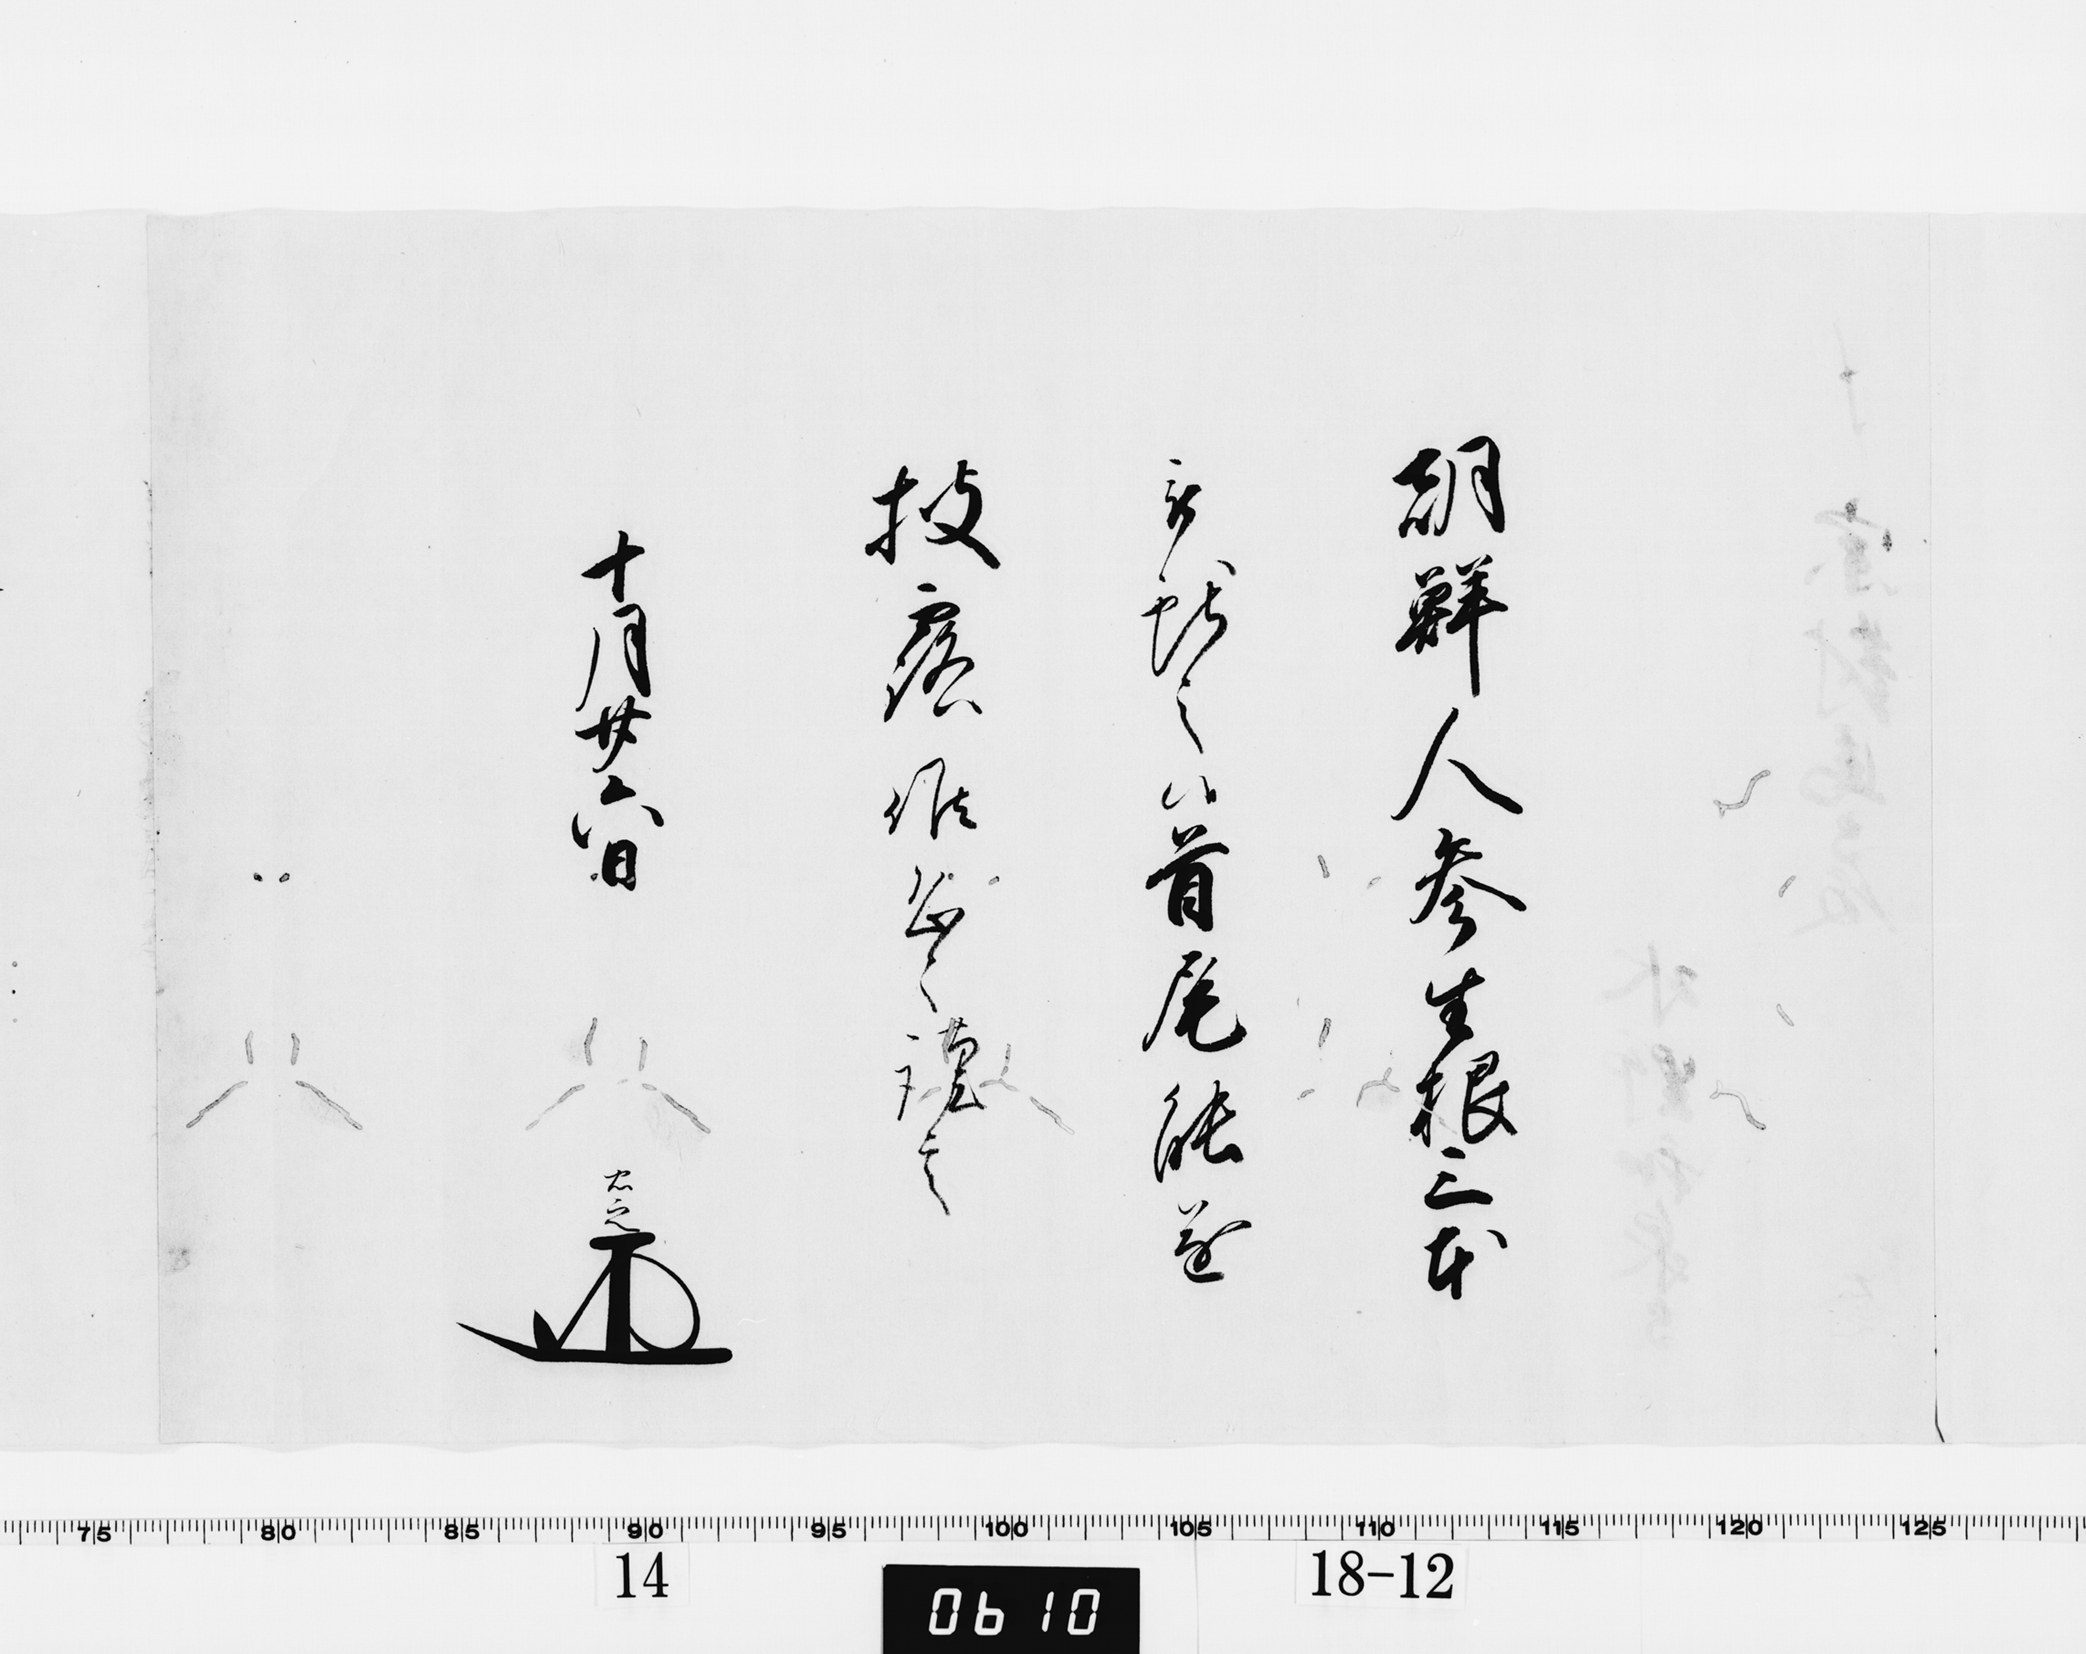 朝鮮人参生根三本
首尾能遂
披露候恐々謹言
十月廿六日
75 80 85 90 95 100 105 110 115 120 125
14 18-12
0610